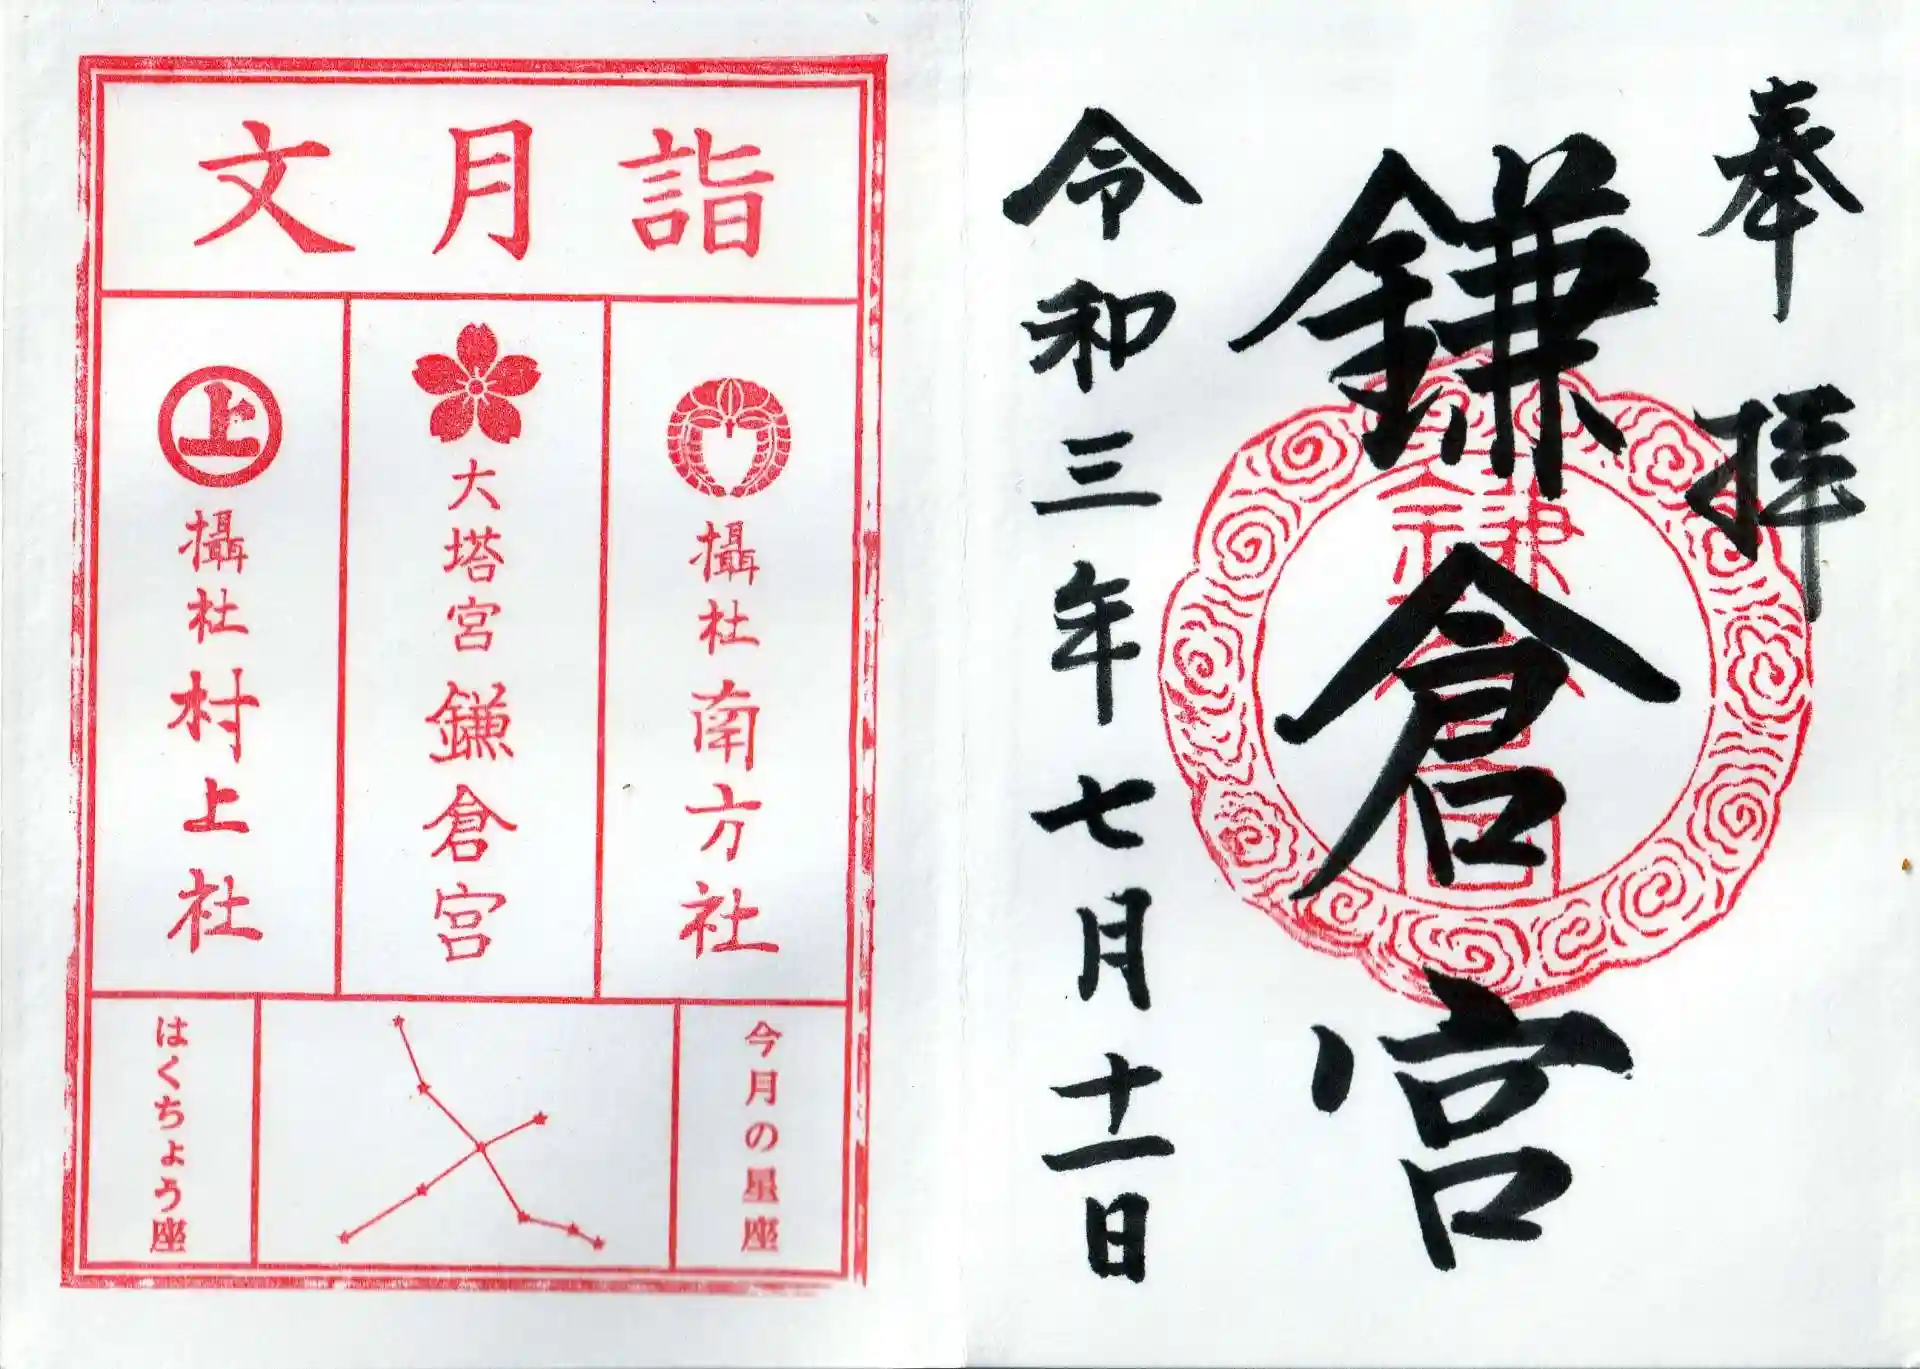 奉拝
鎌倉宮
令和三年七月十一日
文月詣
攝社 南方社
大塔宮 鎌倉宮
上
攝社 村上社
今月の星座
はくちょう座